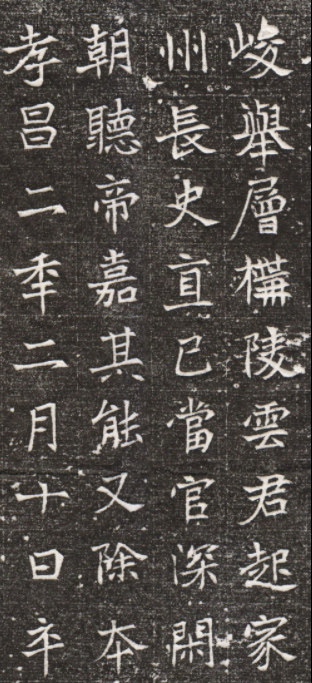 峻舉層構陵雲君起家
州長史直己當官深閑
朝聽帝嘉其能又除本
孝昌二年二月十日卒